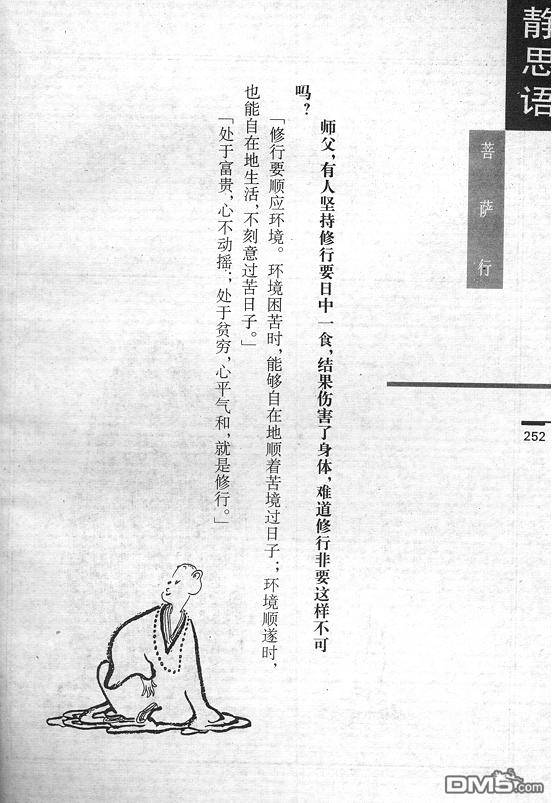 静思语
菩萨行
252
师父，有人坚持修行要日中一食，结果伤害了身体，难道修行非要这样不可
吗？
「修行要顺应环境。环境困苦时，能够自在地顺着苦境过日子；环境顺遂时，
也能自在地生活，不刻意过苦日子。」
「处于富贵，心不动摇；处于贫穷，心平气和，就是修行。」
DM5.com